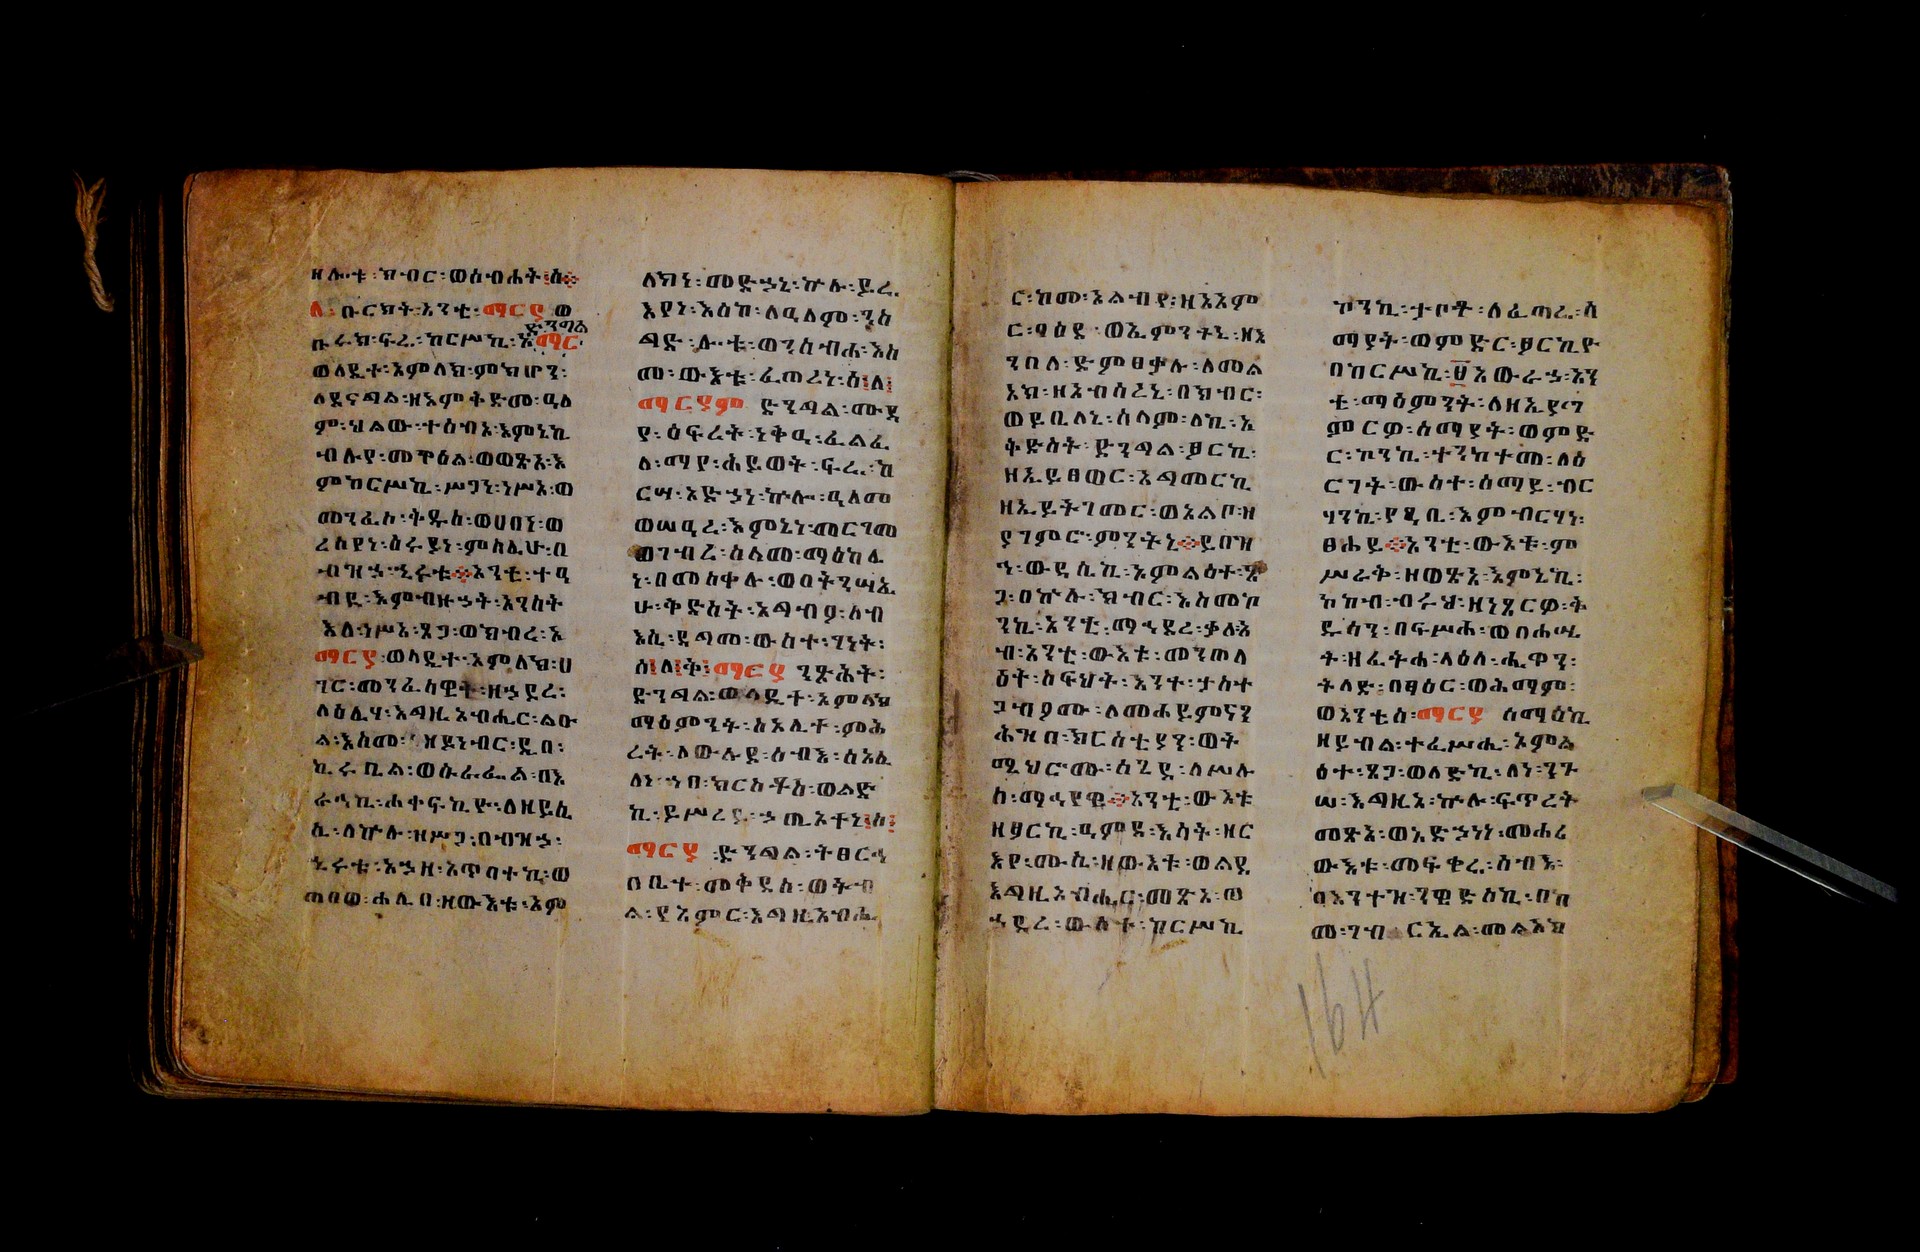 ዘሎቱ፡ክብር፡ወስብሐት፡ስ።
ለ፡ቡርክት፡አንቲ፡ማርያ፡ወ
ድንግል
ቡሩክ፡ፍሬ፡ከርሥኪ፡ኦማር
ወላዲተ፡አምላክ፡ምክሆን፡
ለደናግል፡ዘእምቅድመ፡ዓለ
ም፡ህልው፡ተሰብአ፡እምኔኪ
ብሉየ፡መዋዕል፡ወወጽአ፡እ
ምከርሥኪ፡ሥጋነ፡ነሥአ፡ወ
መንፈሰ፡ቅዱሰ፡ወሀበነ፡ወ
ረሰየነ፡ዕሩያነ፡ምስሌሁ፡በ
ብዝኃ፡ኂሩቱ።አንቲ፡ተዓ
ብዪ፡እምብዙኃት፡አንስት
እለ፡ነሥአ፡ጸጋ፡ወክብረ፡ኦ
ማርያ፡ወላዲተ፡አምላክ፡ሀ
ገር፡መንፈሳዊት፡ዘኃደረ፡
ላዕሌሃ፡እግዚአብሔር፡ልዑ
ል፡እስመ፡ዘይነብር፡ዲበ፡
ኪሩቤል፡ወሱራፌል፡በእ
ራኅኪ፡ሐቀፍኪዮ፡ለዘይሴ
ሲ፡ለኵሉ፡ዘሥጋ፡በብዝኃ፡
ኂሩቱ፡አኃዘ፡አጥባተኪ፡ወ
ጠበወ፡ሐሊበ፡ዘውእቱ፡አም
ላክነ፡መድኃኔ፡ኵሉ፡ይሬ
እየነ፡እስከ፡ለዓለም፡ንስ
ግድ፡ሎቱ፡ወንሰብሐ፡እስ
መ፡ውእቱ፡ፈጠረነ፡ስ፡ለ፡
ማርያም፡ድንግል፡ሙዳ
የ፡ዕፍረት፡ነቅዓ፡ፈልፈ
ለ፡ማየ፡ሕይወት፡ፍሬ፡ከ
ርሣ፡አድኃነ፡ኵሎ፡ዓለመ
ወሠዓረ፡እምኔነ፡መርገመ
ወገብረ፡ሰላመ፡ማዕከሌ
ነ፡በመስቀሉ፡ወበትንሣኤ
ሁ፡ቅድስት፡አግብኦ፡ለብ
እሲ፡ዳግመ፡ውስተ፡ገነት፡
ሰ፡ለ፡ቅ፡ማርያ፡ንጽሕት፡
ድንግል፡ወላዲተ፡አምላክ
ማዕምንት፡ሰአሊተ፡ምሕ
ረት፡ለውሉደ፡ሰብእ፡ሰአሊ
ለነ፡ኀበ፡ክርስቶስ፡ወልድ
ኪ፡ይሥረይ፡ኃጢአተነ፡ሰ፡
ማርያ፡ድንግል፡ትፀርኅ
በቤተ፡መቅደስ፡ወትብ
ል፡ያአምር፡እግዚአብሔ
ር፡ከመ፡አልብየ፡ዘእአም
ር፡ባዕደ፡ወኢምንትኒ፡ዘእ
ንበለ፡ድምፀ፡ቃሉ፡ለመል
አክ፡ዘአብሰረኒ፡በክብር፡
ወይቤለኒ፡ሰላም፡ለኪ፡ኦ
ቅድስት፡ድንግል፡ፆርኪ፡
ዘኢይፀወር፡አግመርኪ
ዘኢይትገመር፡ወአልቦ፡ዘ
ያገምሮ፡ምንትኒ።ይበዝ
ኅ፡ውዳሴኪ፡እምልዕተ፡ጸ
ጋ፡በኵሉ፡ክብር፡እስመ፡ኮ
ንኪ፡አንቲ፡ማኅደረ፡ቃለ፡አ
ብ፡አንቲ፡ውእቱ፡መንጦላ
ዕት፡ስፍህት፡እንተ፡ታስተ
ጋብኦሙ፡ለመሐይምናን
ሕዝበ፡ክርስቲያን፡ወት
ሜህሮሙ፡ስጊደ፡ለሥሉ
ስ፡ማኅየዊ።አንቲ፡ውእቱ
ዘፆርኪ፡ዓምደ፡እሳት፡ዘር
እየ፡ሙሴ፡ዘውእቱ፡ወልደ
እግዚአብሔር፡መጽአ፡ወ
ኃደረ፡ውስተ፡ከርሥኪ
ኮንኪ፡ታቦተ፡ለፈጣሬ፡ሰ
ማያት፡ወምድር፡ፆርኪዮ
በከርሥኪ፡፱አውራኃ፡አን
ቲ፡ማዕምንት፡ለዘኢያገ
ምርዎ፡ሰማያት፡ወምድ
ር፡ኮንኪ፡ተንከተመ፡ለዕ
ርገት፡ውስተ፡ሰማይ፡ብር
ሃንኪ፡የዓቢ፡እምብርሃነ፡
ፀሐይ።አንቲ፡ውእቱ፡ም
ሥራቅ፡ዘወጽአ፡እምኔኪ፡
ኮከብ፡ብሩህ፡ዘነጸርዎ፡ቅ
ዱሳን፡በፍሥሐ፡ወበሐሤ
ት፡ዘፈትሐ፡ላዕለ፡ሔዋን፡
ትለድ፡በፃዕር፡ወሕማም፡
ወአንቲሰ፡ማርያ፡ሰማዕኪ
ዘይብል፡ተፈሥሒ፡ኦምል
ዕተ፡ጸጋ፡ወለድኪ፡ለነ፡ንጉ
ሠ፡እግዚአ፡ኵሉ፡ፍጥረት
መጽአ፡ወአድኃነነ፡መሐሪ
ውእቱ፡መፍቀሬ፡ሰብእ፡
በእንተዝ፡ንዌድሰኪ፡በከ
መ፡ገብርኤል፡መልአክ
164